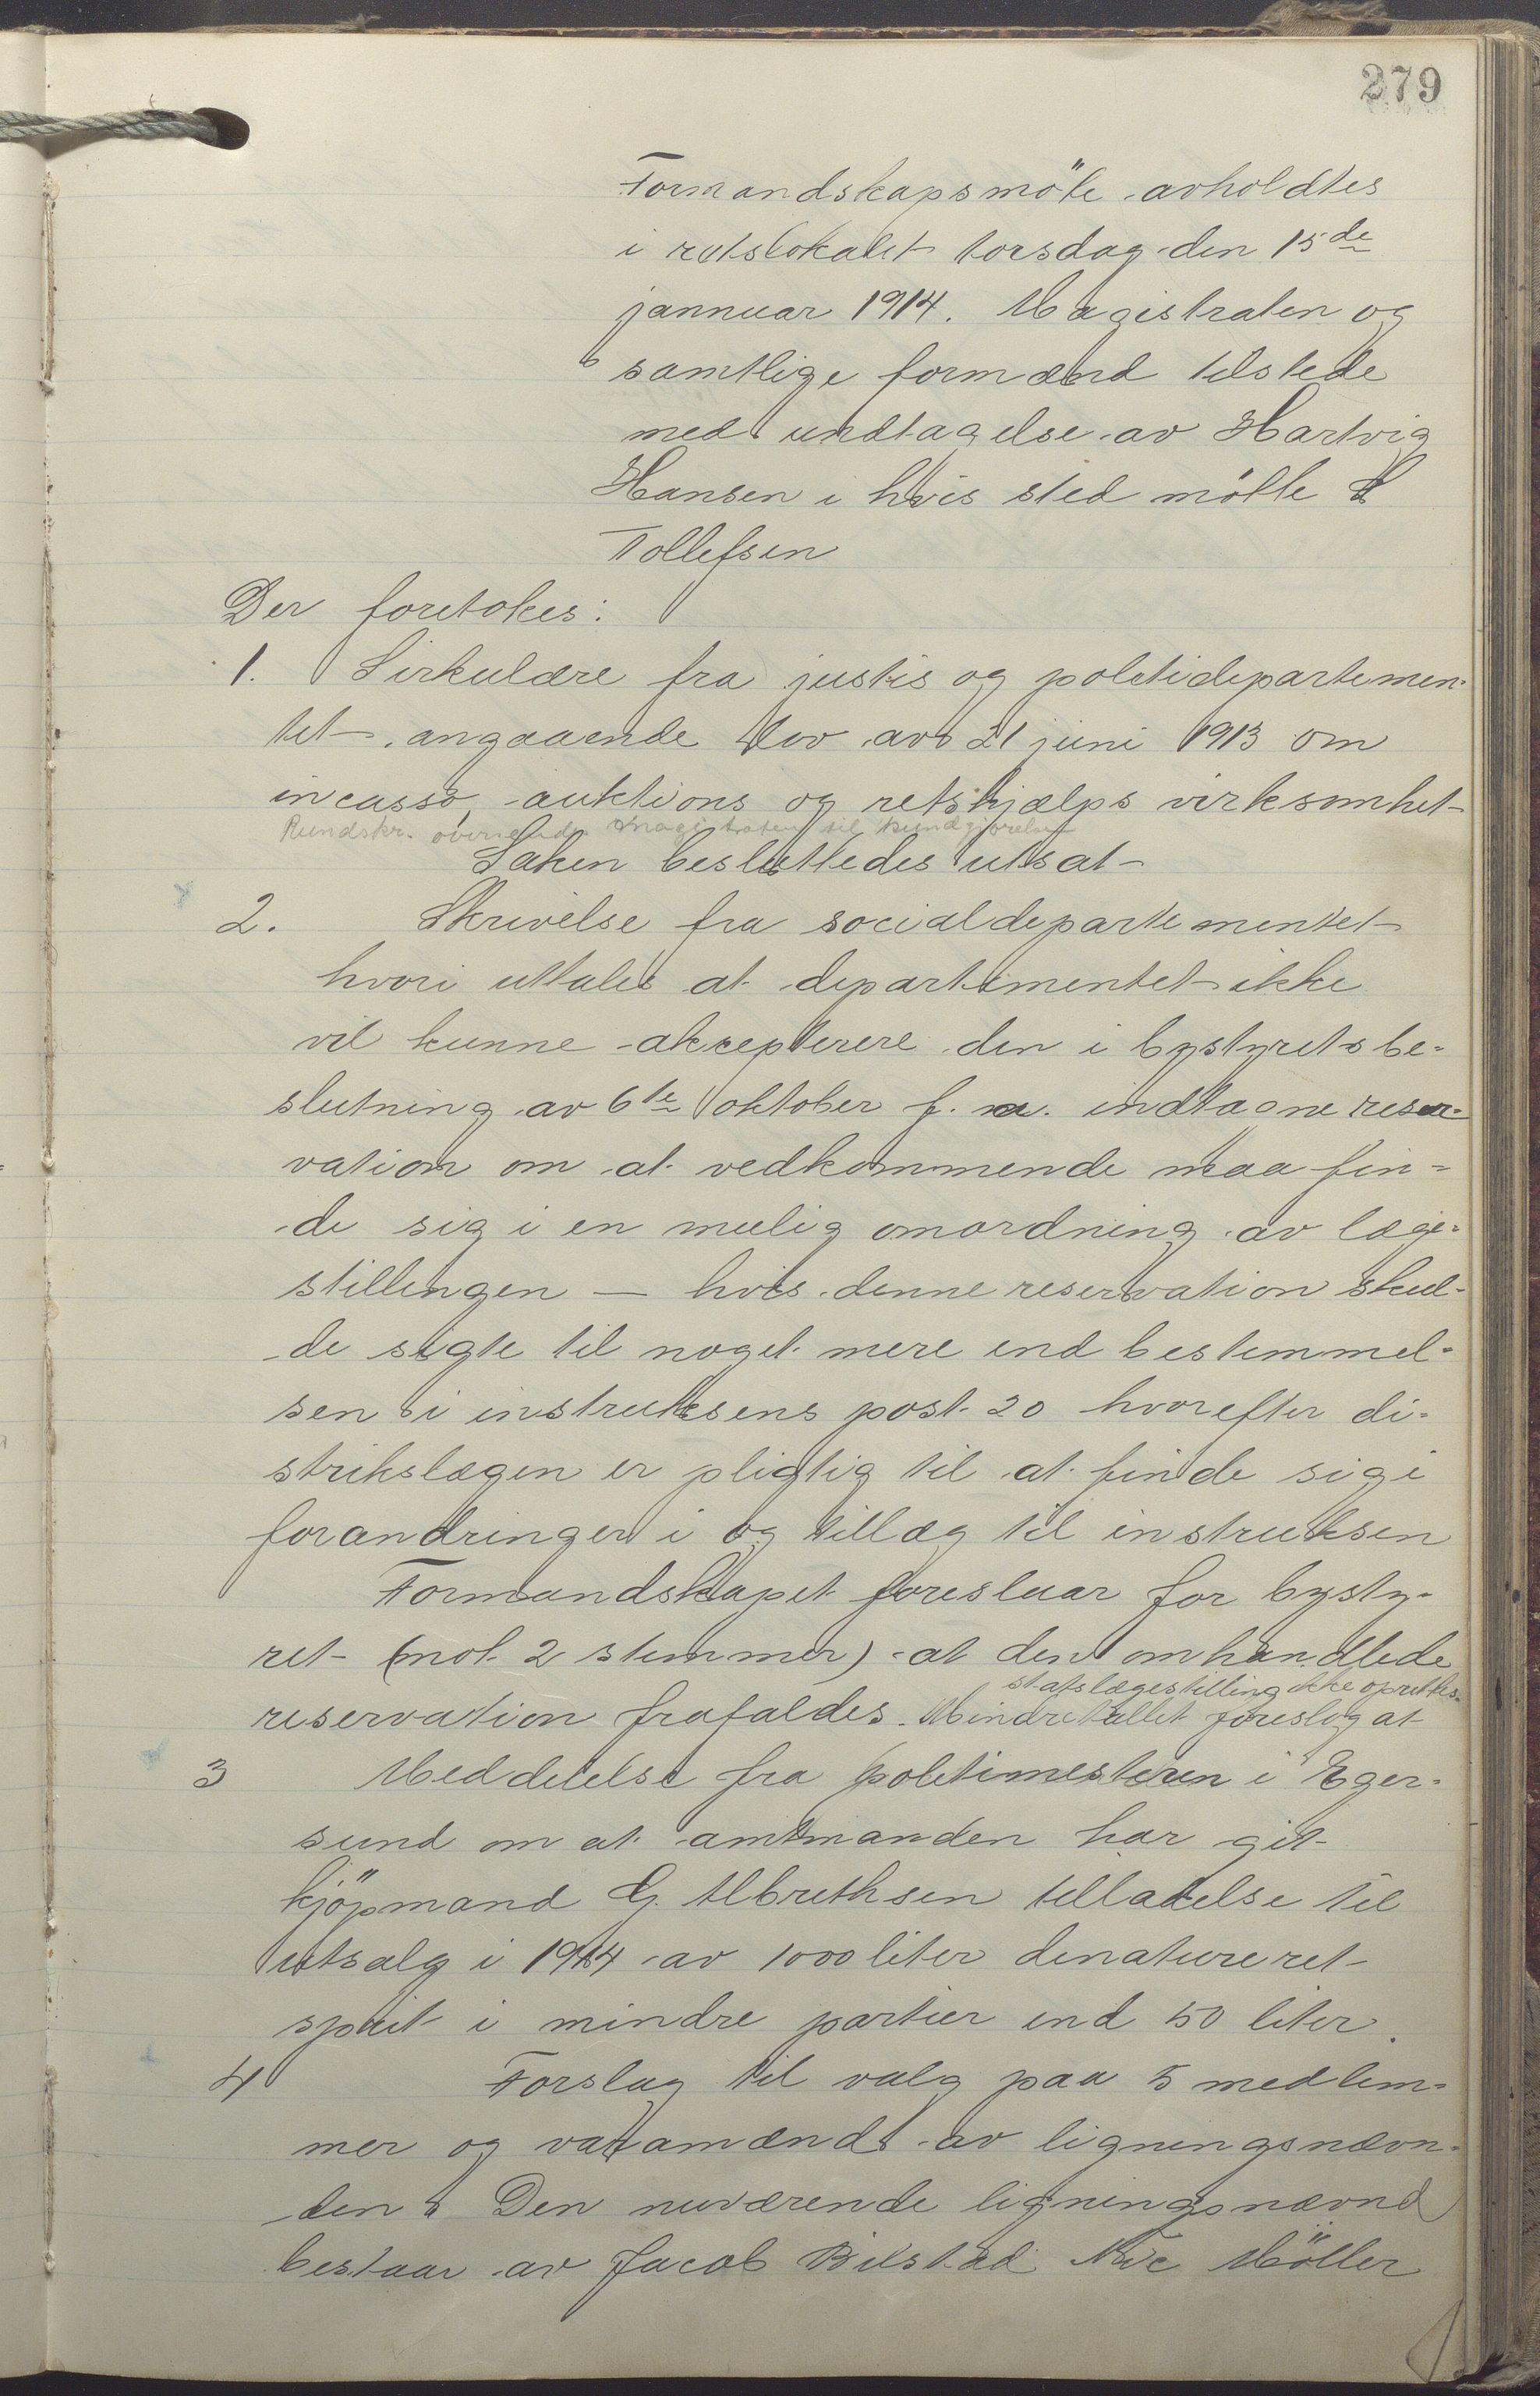 279
Formandskapsmöte avholdtes
i retslokalet torsdag den 15de
jannuar 1914. Magistraten og
samtlige formænd tilstede
med undtagelse av Hartvig
Hansen i hvis sted mötte
Tollefsen
Der foretokes:
1. Sirkulære fra justis og politidepartemen-
tet angaaende lov av 21 juni 1913 om
incasso, auktions og retshjælps virksomhet
Rundskr. oversend. Magistraten til kundgjörelse
Saken besluttedes utsat
2. Skrivelse fra socialdepartementet
hvori uttales at departementet ikke
vil kunne akcepterere den i bystyrets be-
slutning av 6te oktober f. a. indtagne reser-
vation om at vedkommende maa fin-
de sig i en mulig omordning av læge-
stillingen — hvis denne reservation skul-
de sigte til noget mere end bestemmel-
sen i instruksens post 20 hvorefter di-
strikslægen er pligtig til at finde sig i
forandringer i og tillæg til instruksen
Formandskapet foreslaar for bysty-
ret (mot 2 stemmer) at den omhandlede
statslægestilling ikke oprettes.
reservation frafaldes. Mindretallet foreslog at
3 Meddelelse fra politimesteren i Eger-
sund om at amtmanden har git
kjöpmand G. Albrethsen tilladelse til
utsalg i 1914 av 1000 liter denatureret
sprit i mindre partier end 50 liter.
4 Forslag til valg paa 5 medlem-
mer og varamænd av ligningsnævn-
den. Den nuværende ligningsnævnd
bestaar av Jacob Bilstad Nic Möller